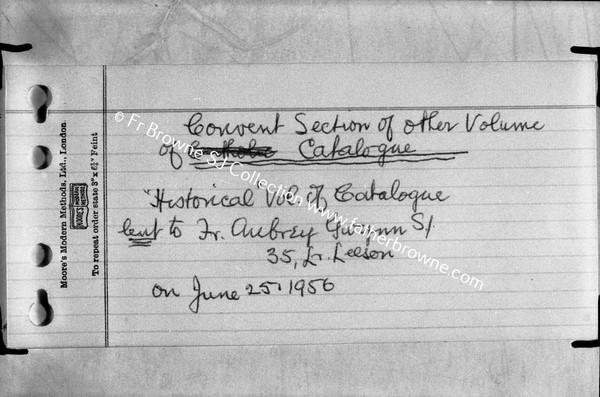 Convent Section of other Volume
of Catalogue
"Historical Vol of Catalogue
lent to Fr. Aubrey Gwynn SJ.
35, Lr. Leeson
on June 25. 1956
Moore's Modern Methods, Ltd., London.
To repeat order state 3" x 6¼" Feint
© Fr Browne SJ Collection www.fatherbrowne.com.